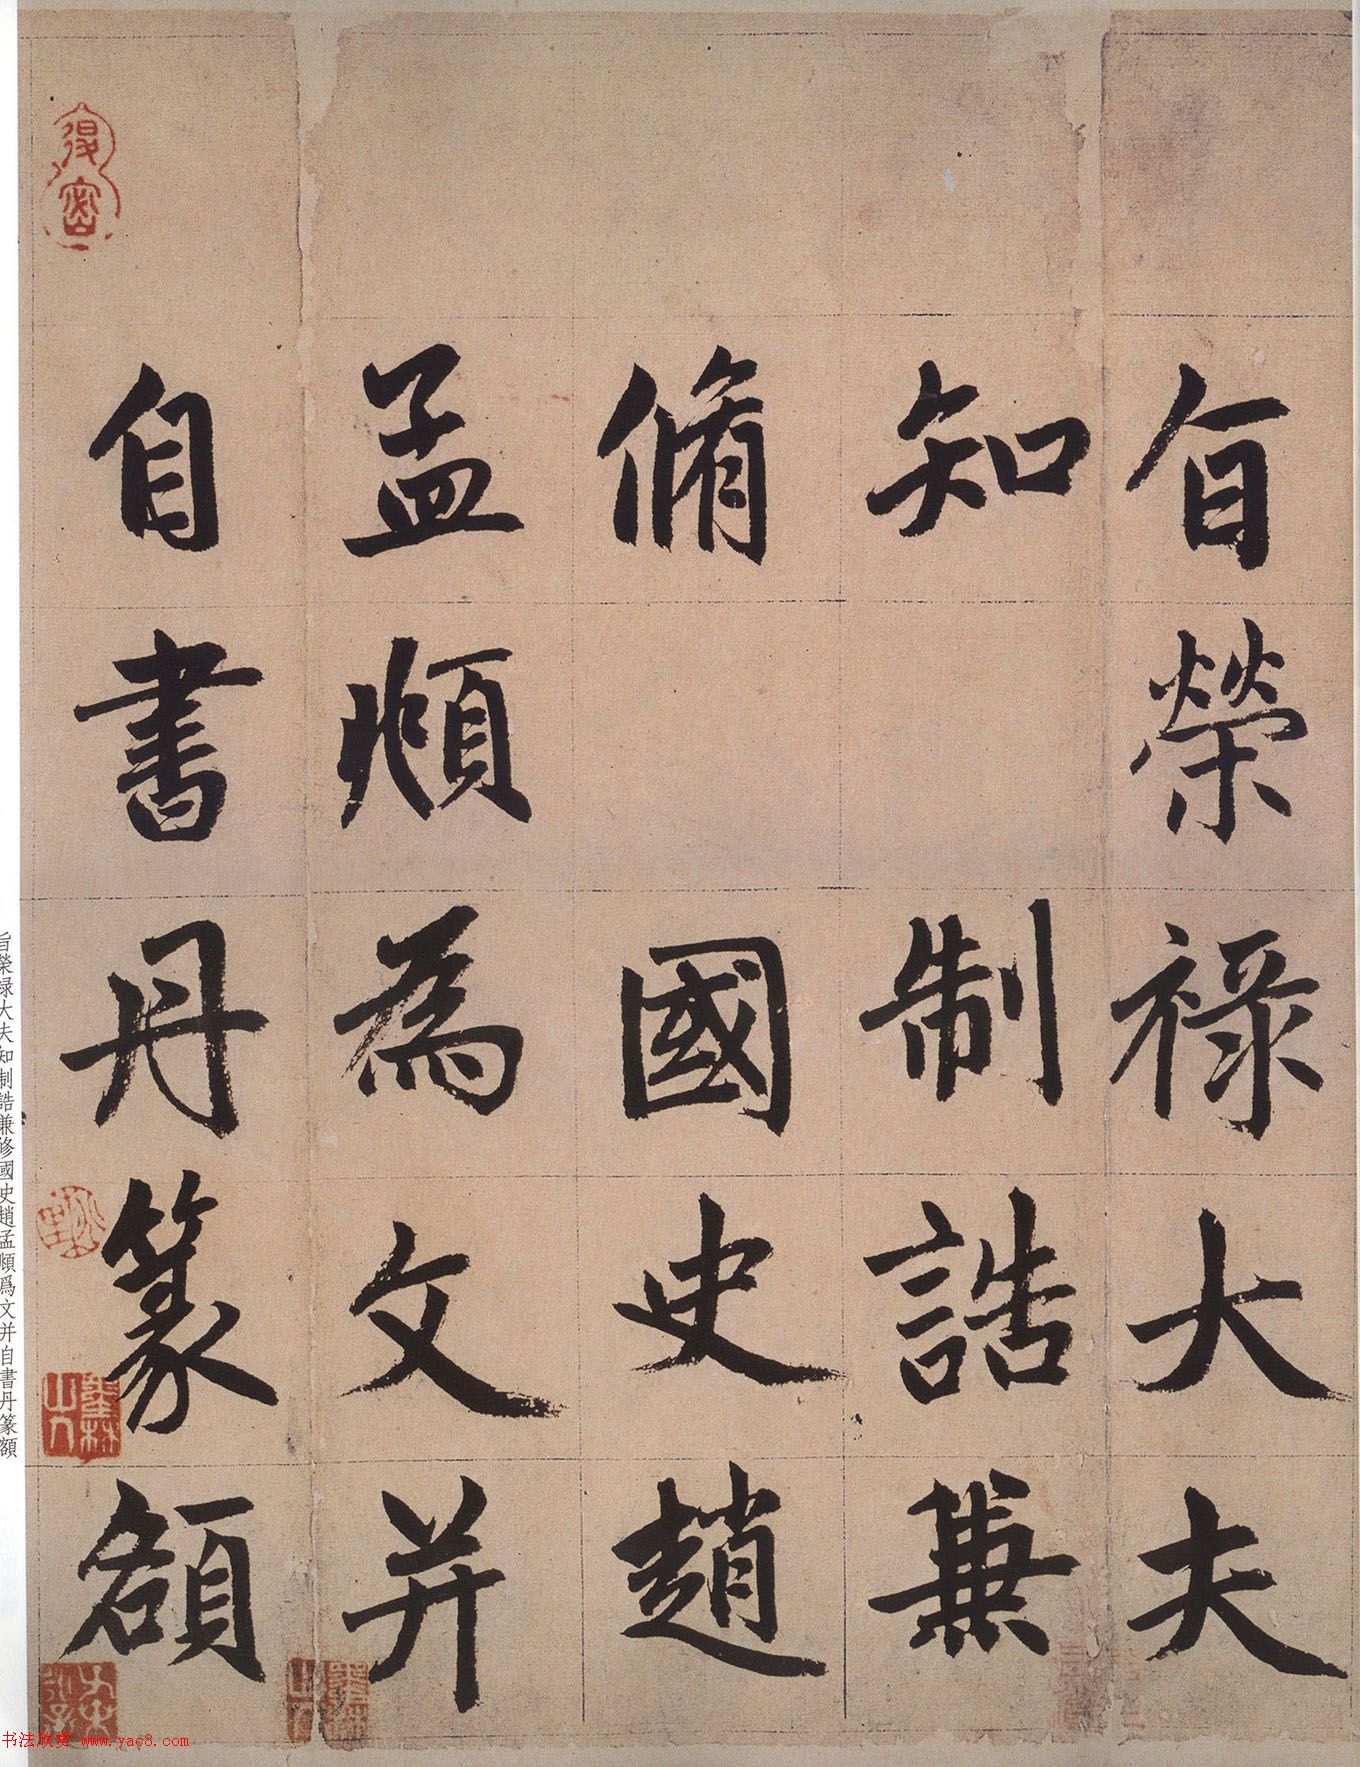 旨榮祿大夫
知制誥兼
脩國史趙
孟頫為文并
自書丹篆額
旨榮禄大夫知制誥兼修國史趙孟頫爲文并自書丹篆額
书法欣赏 www.yac8.com